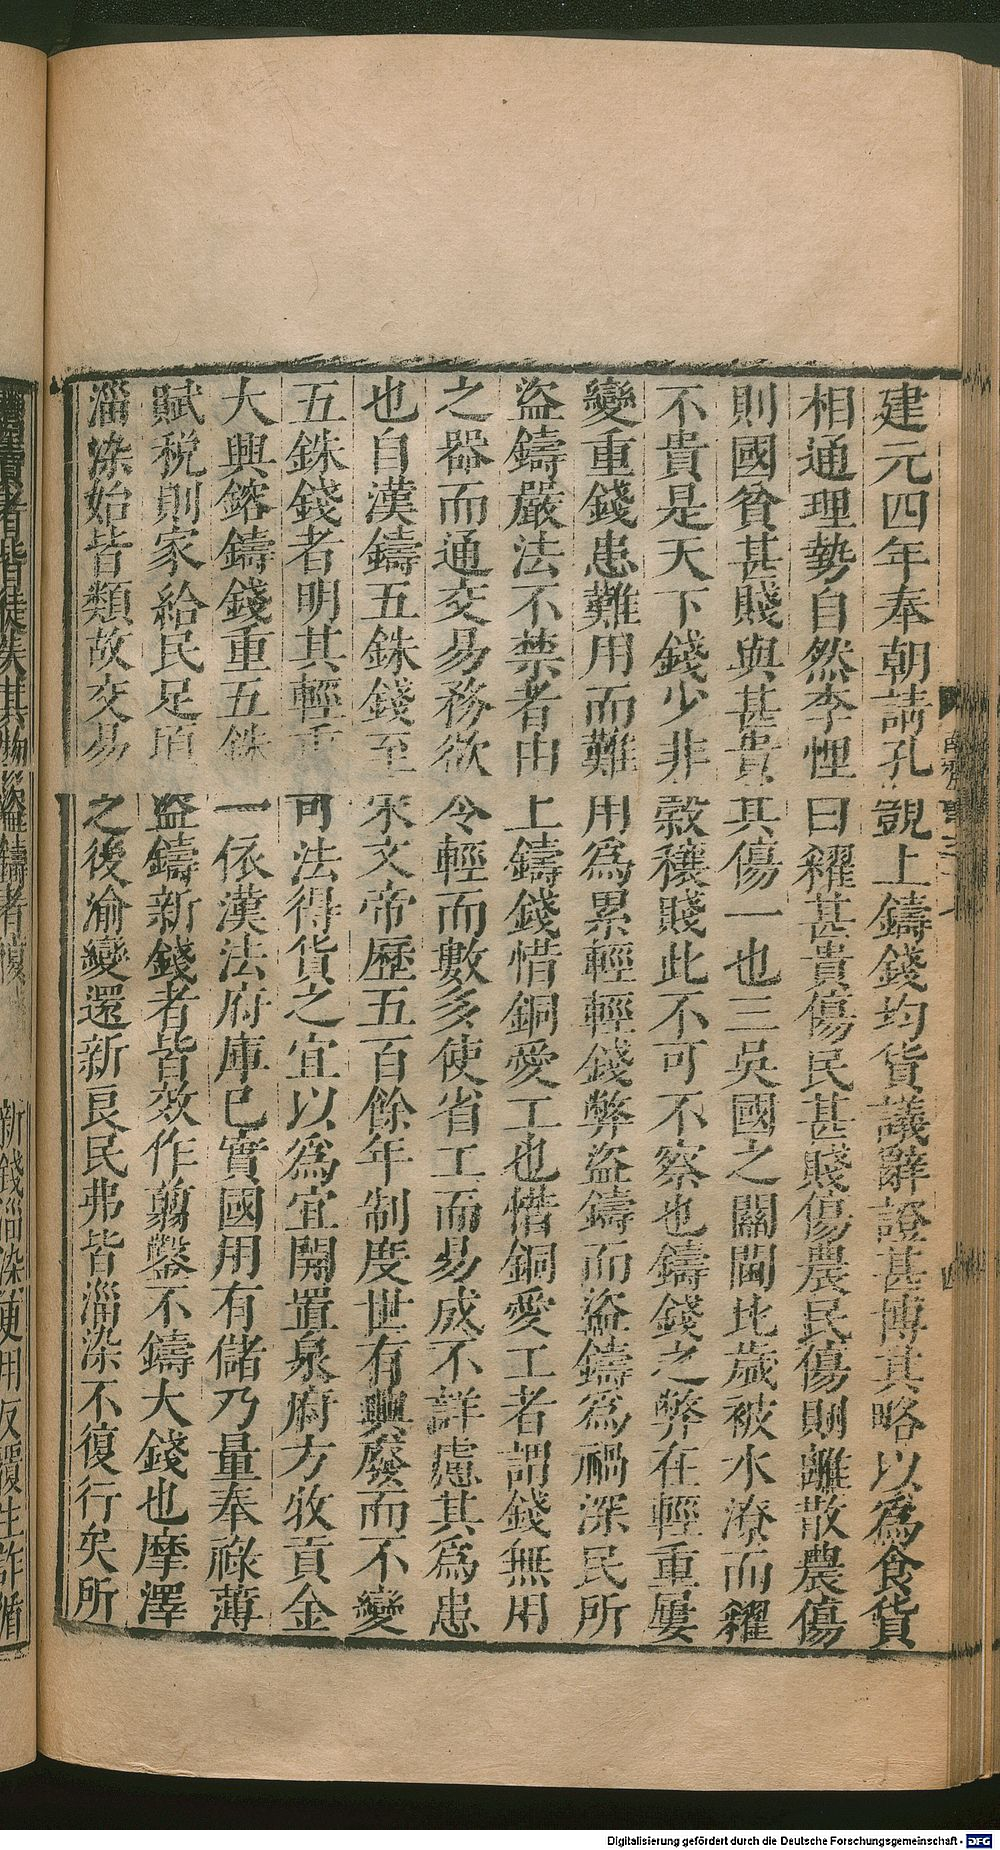 建元四年奉朝請孔覬上鑄錢均貨議辭證甚博其略以爲食貨
相通理勢自然李悝曰糴甚貴傷民甚賤傷農民傷則離散農傷
則國貧甚賤與甚貴其傷一也三吳國之關閫比歲被水潦而糴
不貴是天下錢少非穀穰賤此不可不察也鑄錢之弊在輕重屢
變重錢患難用而難用爲累輕輕錢弊盜鑄而盜鑄爲禍深民所
盜鑄嚴法不禁者由上鑄錢惜銅愛工也惜銅愛工者謂錢無用
之器而通交易務欲令輕而數多使省工而易成不詳慮其爲患
也自漢鑄五銖錢至宋文帝歷五百餘年制度世有興廢而不變
五銖錢者明其輕重可法得貨之宜以爲宜開置泉府方牧貢金
大興鎔鑄錢重五銖一依漢法府庫巳實國用有儲乃量奉祿薄
賦稅則家給民足頃盜鑄新錢者皆效作翦鑿不鑄大錢也摩澤
淄染始皆類故交易之後渝變還新良民弗皆淄染不復行矣所
新錢淄染更用反覆生詐循
Digitalisierung gefördert durch die Deutsche Forschungsgemeinschaft - DFG